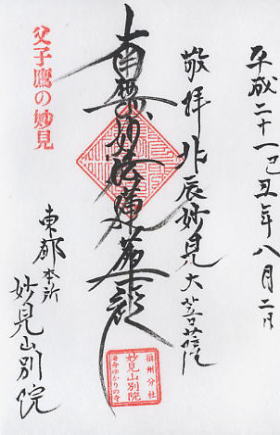 平成二十一己丑年八月二日
敬拝 北辰妙見大菩薩
南無妙法蓮華経
父子鷹の妙見
東都本所
妙見山別院
摂州分社
妙見山別院
寿命ゆかりの寺